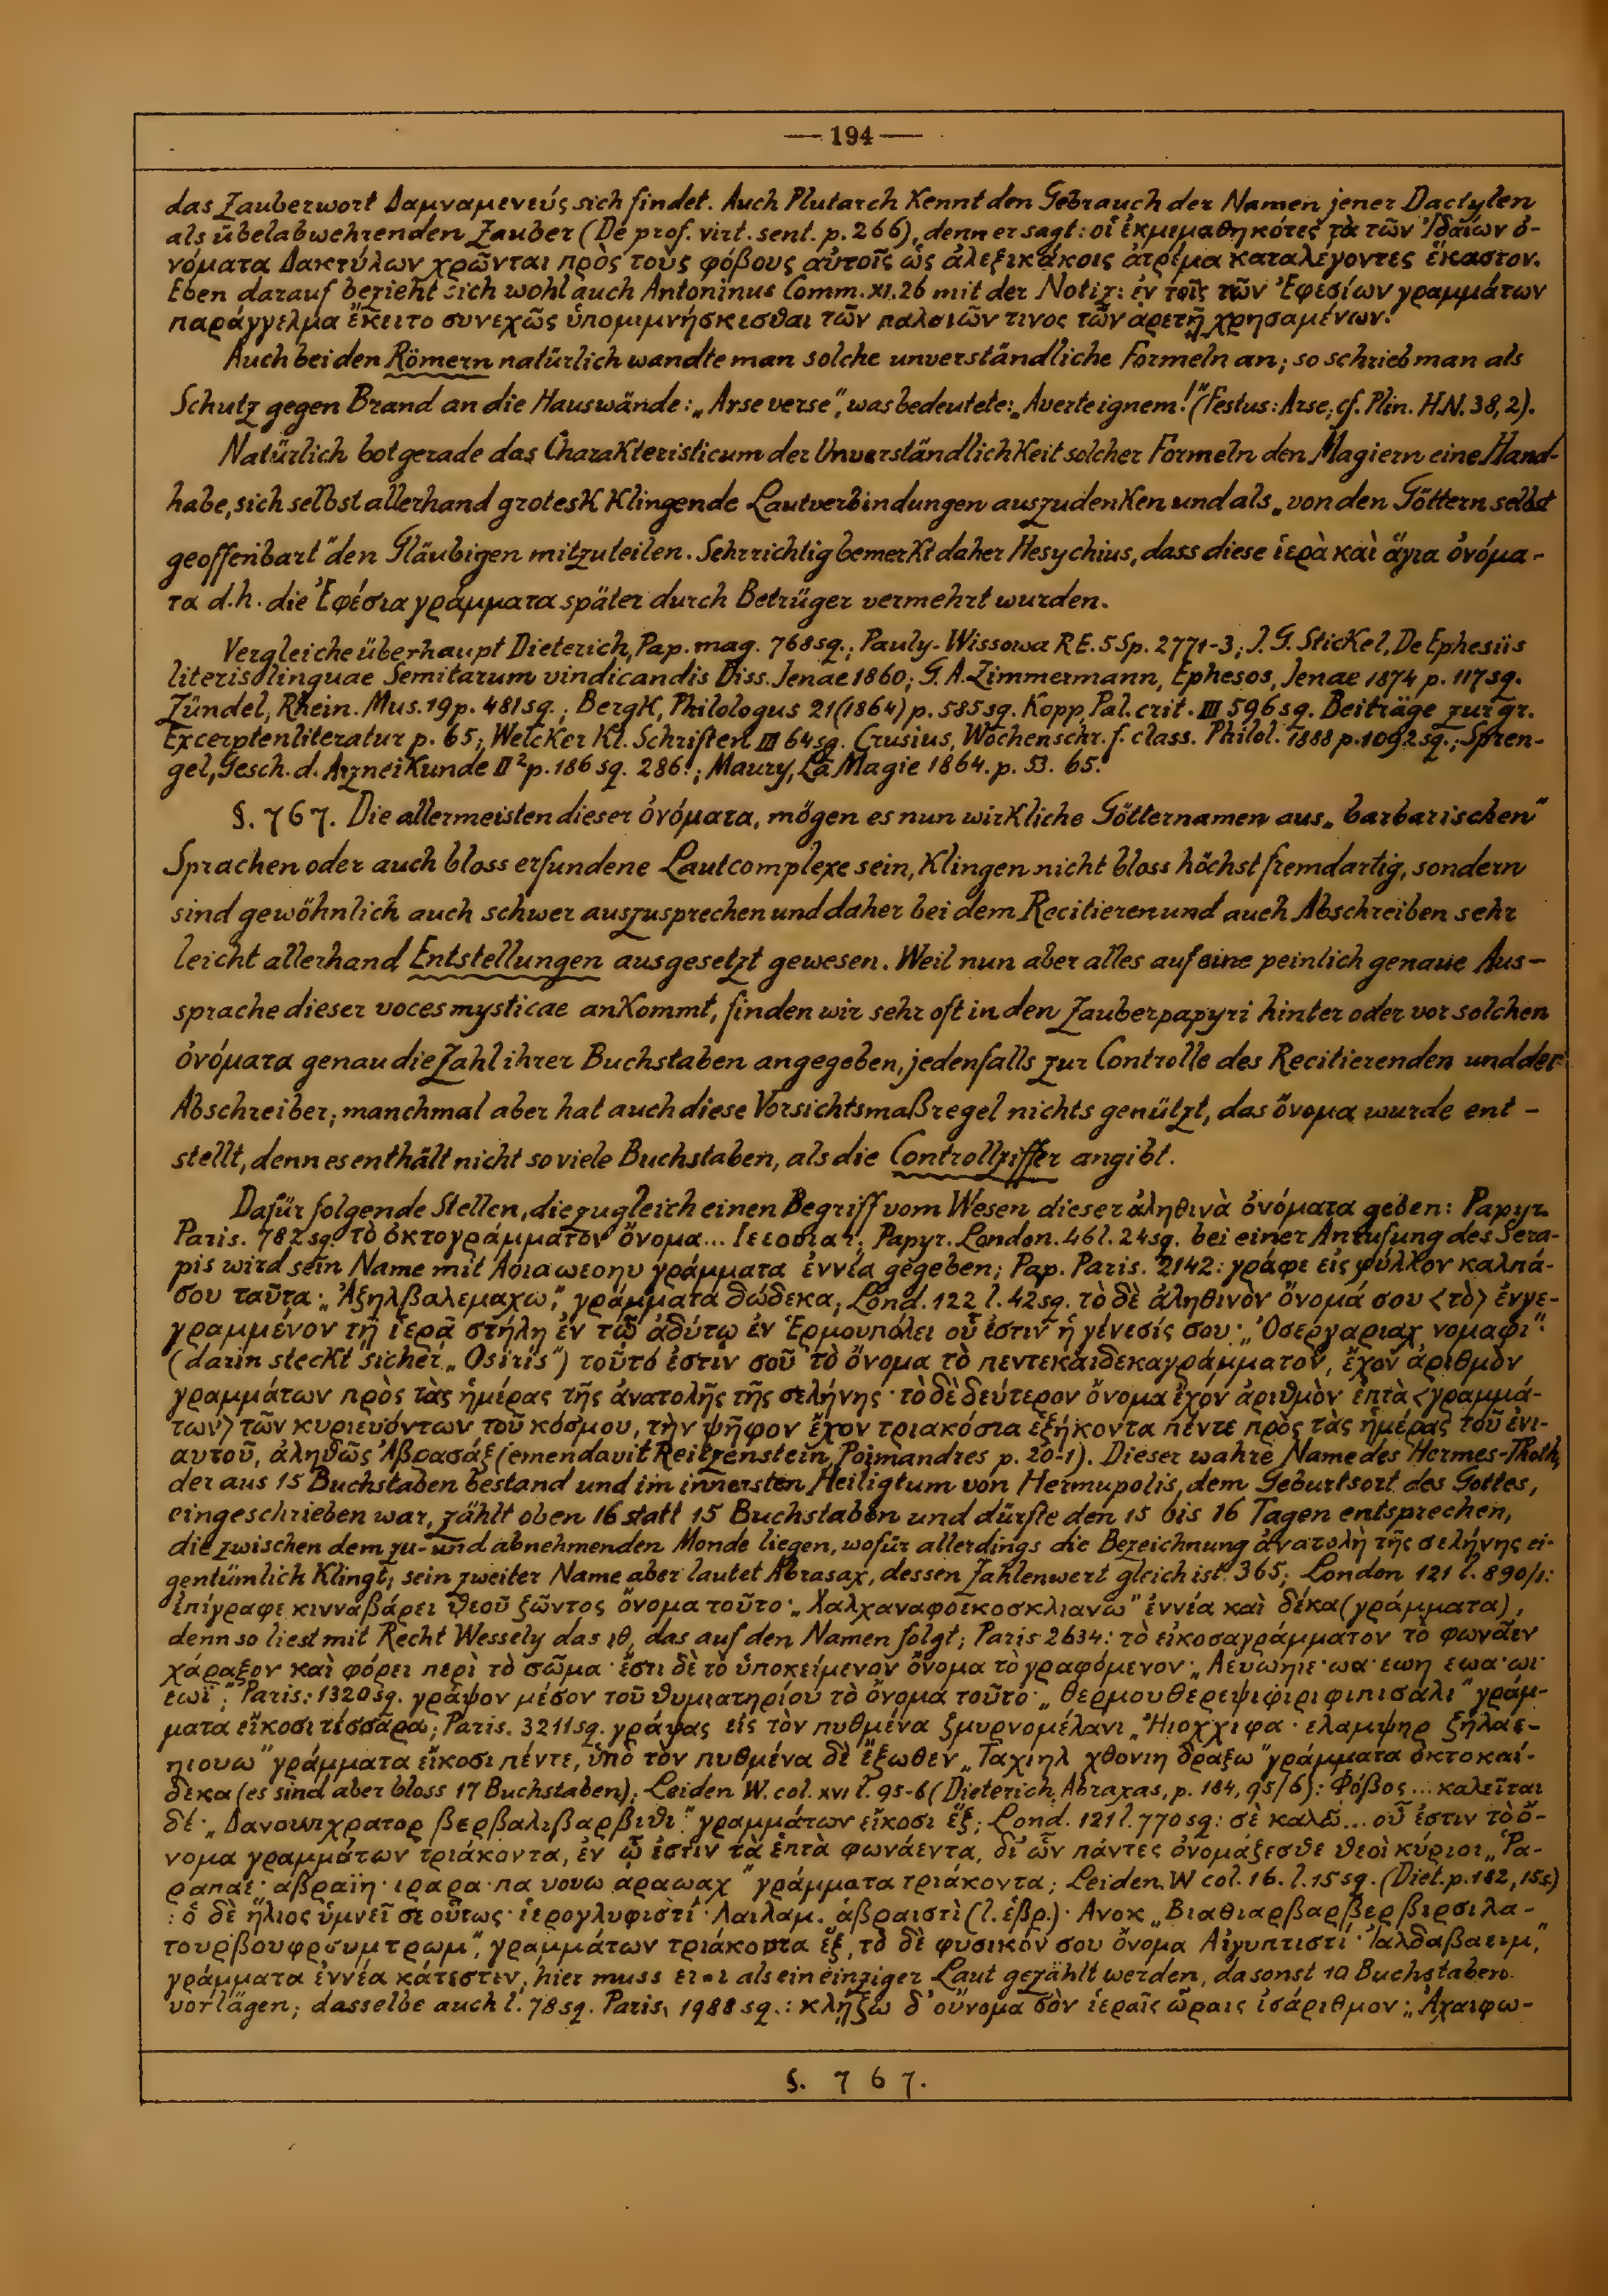 — 194 —
das Zauberwort Δαμναμενεύς sich findet. Auch Plutarch kennt den Gebrauch der Namen jener Dactylen
als übelabwehrenden Zauber (De prof. virt. sent. p. 266), denn er sagt: οἱ ἐκμεμαθηκότες τὰ τῶν Ἰδαίων ὀ-
νόματα Δακτύλων χρῶνται πρὸς τοὺς φόβους αὐτοῖς ὡς ἀλεξικάκοις ἀτρέμα καταλέγοντες ἕκαστον.
Eben darauf bezieht sich wohl auch Antoninus Comm. XI. 26 mit der Notiz: ἐν τοῖς τῶν Ἐφεσίων γραμμάτων
παράγγελμα ἔκειτο συνεχῶς ὑπομιμνήσκεσθαι τῶν παλαιῶν τινος τῶν ἀρετῇ χρησαμένων.
Auch bei den Römern natürlich wandte man solche unverständliche Formeln an; so schrieb man als
Schutz gegen Brand an die Hauswände: „Arse verse", was bedeutete: „Averte ignem!" (Festus: Arse, cf. Plin. H.N. 38, 2).
Natürlich bot gerade das Charakteristicum der Unverständlichkeit solcher Formeln den Magiern eine Hand-
habe, sich selbst allerhand grotesk klingende Lautverbindungen auszudenken und als „von den Göttern selbst
geoffenbart" den Gläubigen mitzuteilen. Sehr richtig bemerkt daher Hesychius, dass diese ἱερὰ καὶ ἅγια ὀνόμα-
τα d.h. die Ἐφέσια γράμματα später durch Betrüger vermehrt wurden.
Vergleiche überhaupt Dieterich, Pap. mag. 768 sq.; Pauly-Wissowa RE. 5 Sp. 2771-3; J. G. Stickel, De Ephesiis
literis linguae Semitarum vindicandis Diss. Jenae 1860; G. A. Zimmermann, Ephesos, Jenae 1874 p. 117 sq.
Zündel, Rhein. Mus. 19 p. 481 sq.; Bergk, Philologus 21 (1864) p. 585 sq. Kopp, Pal. crit. III 596 sq. Beiträge zur gr.
Excerptenliteratur p. 65; Welcker Kl. Schriften III 64 sq. Crusius, Wochenschr. f. class. Philol. 1888 p. 1092 sq.; Spren-
gel, Gesch. d. Arzneikunde II² p. 186 sq. 286.; Maury, La Magie 1864. p. 53. 65.
§. 767. Die allermeisten dieser ὀνόματα, mögen es nun wirkliche Götternamen aus „barbarischen"
Sprachen oder auch bloss erfundene Lautcomplexe sein, klingen nicht bloss höchst fremdartig, sondern
sind gewöhnlich auch schwer auszusprechen und daher bei dem Recitieren und auch Abschreiben sehr
leicht allerhand Entstellungen ausgesetzt gewesen. Weil nun aber alles auf eine peinlich genaue Aus-
sprache dieser voces mysticae ankommt, finden wir sehr oft in den Zauberpapyri hinter oder vor solchen
ὀνόματα genau die Zahl ihrer Buchstaben angegeben, jedenfalls zur Controlle des Recitierenden und der
Abschreiber; manchmal aber hat auch diese Vorsichtsmaßregel nichts genützt, das ὄνομα wurde ent-
stellt, denn es enthält nicht so viele Buchstaben, als die Controllziffer angibt.
Dafür folgende Stellen, die zugleich einen Begriff vom Wesen dieser ἀληθινὰ ὀνόματα geben: Papyr.
Paris. 782 sq. τὸ ὀκτογράμματον ὄνομα... Papyr. London. 46 l. 24 sq. bei einer Anrufung des Sera-
pis wird sein Name mit Αοιαωεοηυ γράμματα ἐννέα gegeben; Pap. Paris. 2142: γράφε εἰς φύλλον καλπά-
σου ταῦτα· „Ἀζηλβαλεμαχω", γράμματα δώδεκα; Lond. 122 l. 42 sq. τὸ δὲ ἀληθινὸν ὄνομά σου <τὸ> ἐνγε-
γραμμένον τῇ ἱερᾷ στήλῃ ἐν τῷ ἀδύτῳ ἐν Ἑρμουπόλει οὗ ἐστιν ἡ γένεσίς σου· „Ὀσεργαριαχ νομαφι".
(darin steckt sicher „Osiris") τοῦτό ἐστιν σοῦ τὸ ὄνομα τὸ πεντεκαιδεκαγράμματον, ἔχον ἀριθμὸν
γραμμάτων πρὸς τὰς ἡμέρας τῆς ἀνατολῆς τῆς σελήνης· τὸ δὲ δεύτερον ὄνομα ἔχον ἀριθμὸν ἑπτὰ <γραμμά-
των> τῶν κυριευόντων τοῦ κόσμου, τὴν ψῆφον ἔχον τριακόσια ἑξήκοντα πέντε πρὸς τὰς ἡμέρας τοῦ ἐνι-
αυτοῦ, ἀληθῶς Ἀβρασάξ (emendavit Reitzenstein, Poimandres p. 20-1). Dieser wahre Name des Hermes-Thoth,
der aus 15 Buchstaben bestand und im innersten Heiligtum von Hermupolis, dem Geburtsort des Gottes,
eingeschrieben war, zählt oben 16 statt 15 Buchstaben und dürfte den 15 bis 16 Tagen entsprechen,
die zwischen dem zu- und abnehmenden Monde liegen, wofür allerdings die Bezeichnung ἀνατολὴ τῆς σελήνης ei-
gentümlich klingt; sein zweiter Name aber lautet Abrasax, dessen Zahlenwert gleich ist 365; London 121 l. 890/1:
ἐπίγραφε κινναβάρει θεοῦ ζῶντος ὄνομα τοῦτο· „Χαλχαναφοεικοσκλιανω" ἐννέα καὶ δέκα (γράμματα),
denn so liest mit Recht Wessely das ιθ, das auf den Namen folgt; Paris 2634: τὸ εἰκοσαγράμματον τὸ φωνᾶεν
χάραξον καὶ φόρει περὶ τὸ σῶμα· ἔστι δὲ τὸ ὑποκείμενον ὄνομα τὸ γραφόμενον· „Αευωηιε· ωα· εωη εωα· ωι·
εωι"; Paris: 1320 sq. γράψον μέσον τοῦ θυμιατηρίου τὸ ὄνομα τοῦτο· „θερμουθερεψιφιριφιπισαλι" γράμ-
ματα εἴκοσι τέσσαρα; Paris. 3211 sq. γράψας εἰς τὸν πυθμένα ζμυρνομέλανι „Ἠιοχχιφα· ελαμψηρ ζηλαε-
ηιουω" γράμματα εἴκοσι πέντε, ὑπὸ τὸν πυθμένα δὲ ἔξωθεν „Ταχιηλ χθονιη δραξω" γράμματα ὀκτοκαί-
δεκα (es sind aber bloss 17 Buchstaben); Leiden W. col. XVI l. 95-6 (Dieterich, Abraxas, p. 184, 95/6): Φόβος ... καλεῖται
δέ· „Δανουπχρατορ βερβαλιβαρβιθι" γραμμάτων εἴκοσι ἕξ; Lond. 121 l. 770 sq: σὲ καλῶ... οὗ ἐστιν τὸ ὄ-
νομα γραμμάτων τριάκοντα, ἐν ᾧ ἐστιν τὰ ἑπτὰ φωνάεντα, δι' ὧν πάντες ὀνομάζεσθε θεοὶ κύριοι „Πα-
ραπαε· αβραϊη· ιραρα· πα νουω αραωαχ" γράμματα τριάκοντα; Leiden W col. 16. l. 15 sq. (Diet. p. 182, 15 s.)
: ὁ δὲ ἥλιος ὑμνεῖ σε οὕτως· ἱερογλυφιστί· Λαιλαμ. ἀβραιστὶ (l. ἑβρ.)· Ανοκ „Βιαθιαρβαρβερβιρσιλα-
τουρβουφρουμτρωμ", γραμμάτων τριάκοντα ἕξ, τὸ δὲ φυσικόν σου ὄνομα Αἰγυπτιστί· „Ἰαλδαβαειμ",
γράμματα ἐννέα κάτεστιν, hier muss ει = ι als ein einziger Laut gezählt werden, da sonst 10 Buchstaben
vorlägen; dasselbe auch l. 78 sq. Paris, 1988 sq.: κλῄζω δ' οὔνομα σὸν ἱεραῖς ὥραις ἰσάριθμον· „Ἀχαιφω-
§. 767.